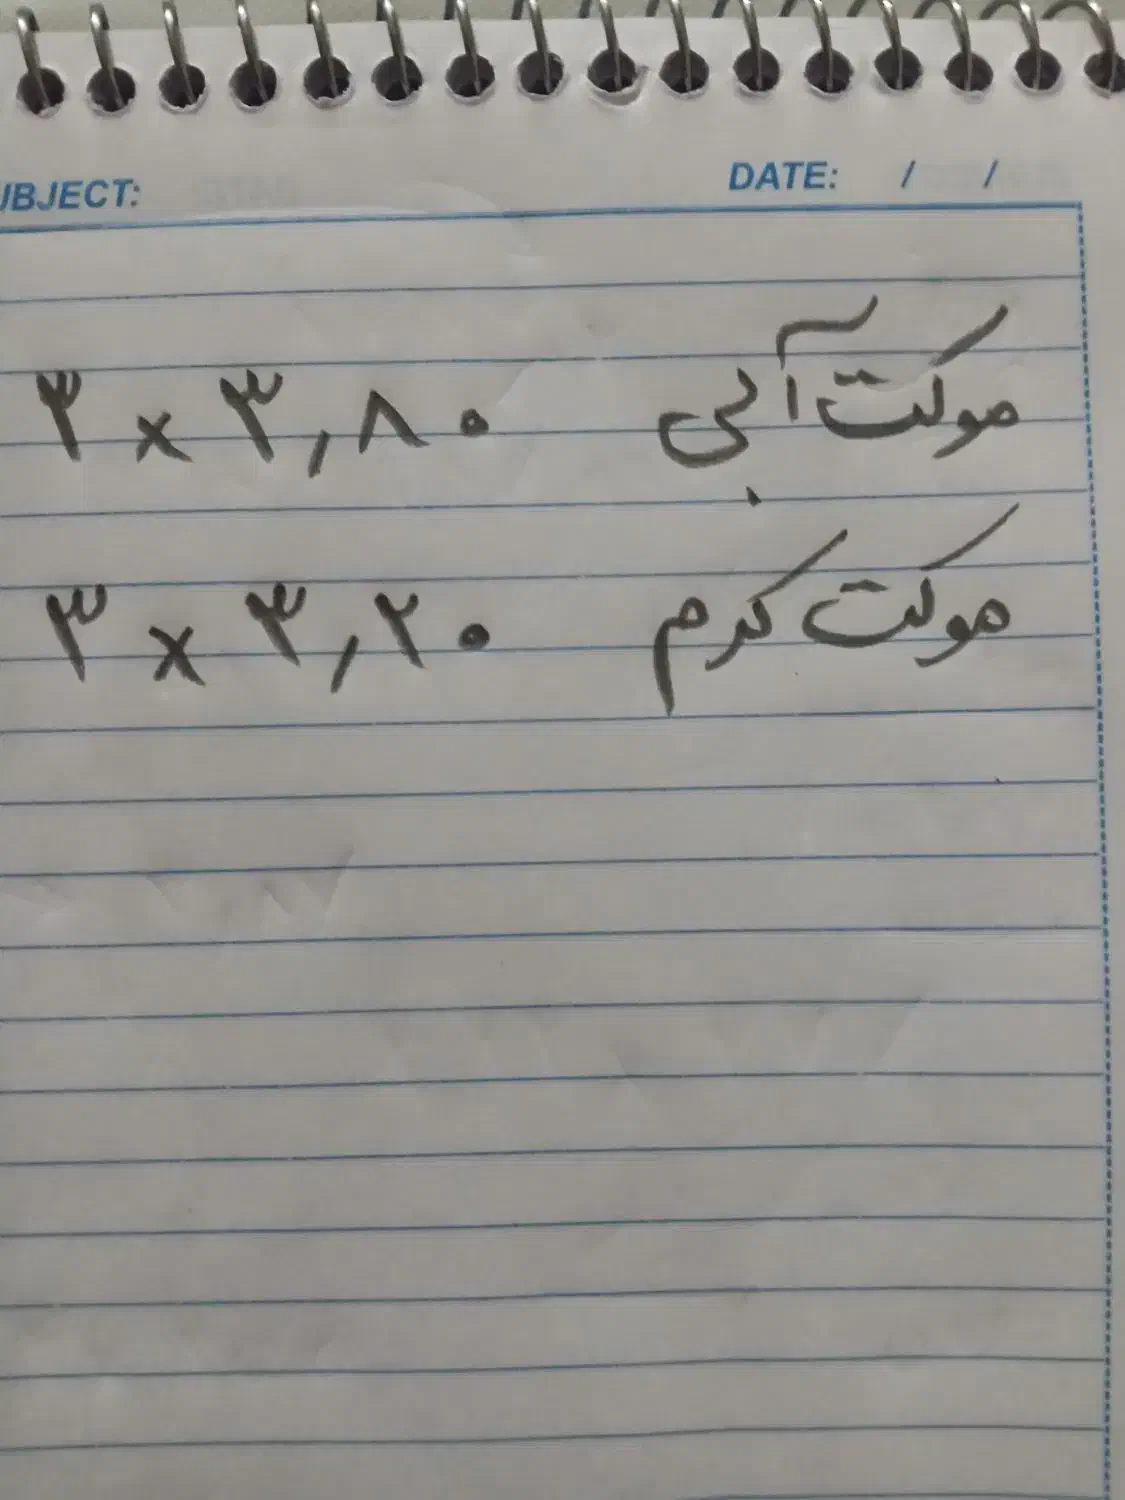 SUBJECT: DATE: / /
موکت آبی ۳ × ۳٫۸۰
موکت کرم ۳ × ۳٫۲۰